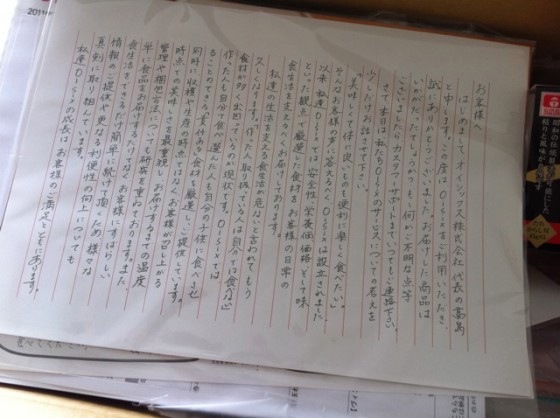 お客様へ
はじめまして。オイシックス株式会社代表の高島
と申します。この度はOisixをご利用いただき、
誠にありがとうございました。お届けした商品は
いかがだったでしょうか?もし何かご不明な点等
ございましたら、カスタマーサポートまでいつでもご連絡下さい。
さて本日は、私たちOisixのサービスについての考えを
少しだけお話させて下さい。
『美味しくて体に良いものを便利に楽しく食べたい。』
そんなお客様の声に答えるべくOisixは設立されました。
以来、私達Oisixでは安全性、栄養価、価格、そして味
といった観点で厳選した食材をお客様の日常の
食生活を支えるべくお届けしております。
私達の生活を支える食生活が危ないと言われてもう
久しくなります。「作った人、取り扱っている人は自分では食べない
食材が多く出回っている」のが現状です。Oisixでは
作った人も自分で食べ、選んだ人も自分の子供に食べさせ
ることのできる責任ある食材を厳選し、ご提供しています。
同時に収穫や生産の時点ではなく、お客様が召し上がる
時点での美味しさを最重視し、お届けするまでの温度
管理や梱包方法についても研究を重ねております。また
単に食品をお届けするだけでなく、お客様にすばらしい
食生活をできるだけ簡単に続けて頂くため、様々な
情報のご提供や更なる利便性の向上についても
真剣に取り組んでいます。
私達Oisixの成長はお客様のご満足とともにあります。